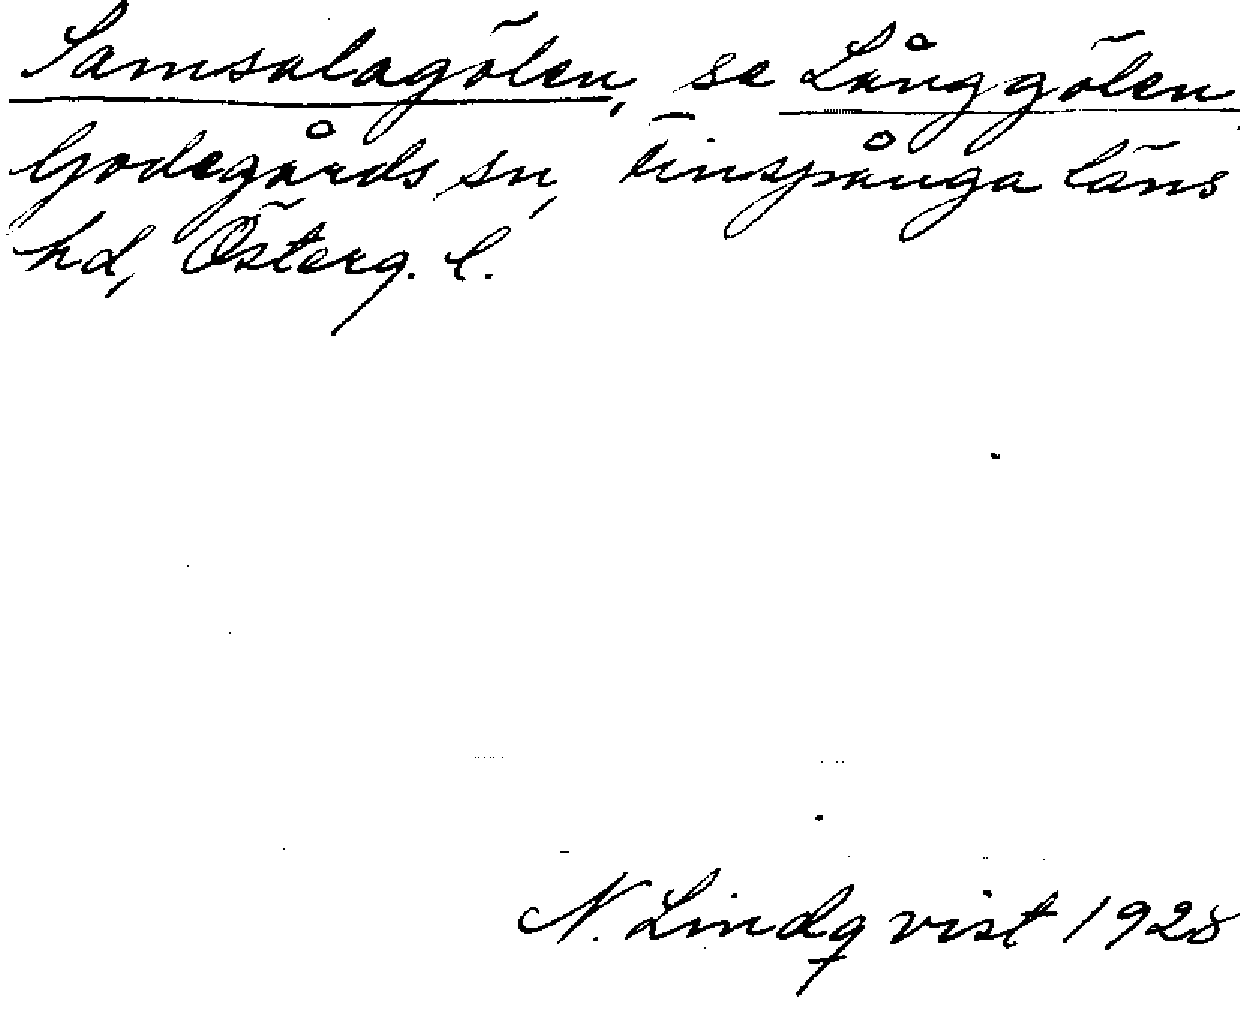 Samsalagölen, se Långgölen,
Godegårds sn, Finspånga läns
hd, Österg. l.
N. Lindqvist 1928